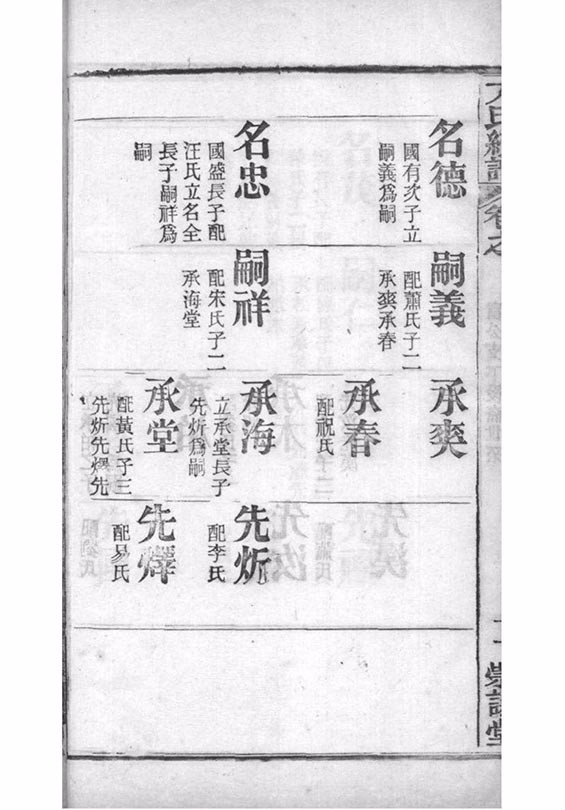 名德
國有次子立
嗣義爲嗣
名忠
國盛長子配
汪氏立名全
長子嗣祥爲
嗣
嗣義
配蕭氏子二
承奭承春
嗣祥
配宋氏子二
承海堂
承奭
承春
配祝氏
承海
立承堂長子
先炘爲嗣
承堂
配黃氏子三
先炘先燡先
先炘
配李氏
先燡
配易氏
氏續譜卷之
崇譜堂